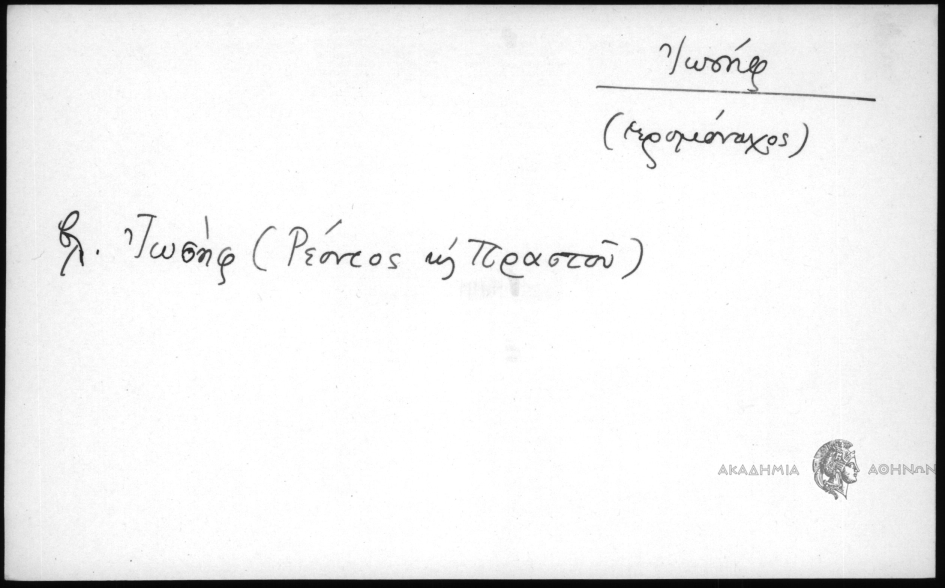 Ἰωσήφ
(ἱερομόναχος)
βλ. Ἰωσήφ (Ρέοντος κ̀ Πραστοῦ)
ΑΚΑΔΗΜΙΑ ΑΘΗΝΩΝ